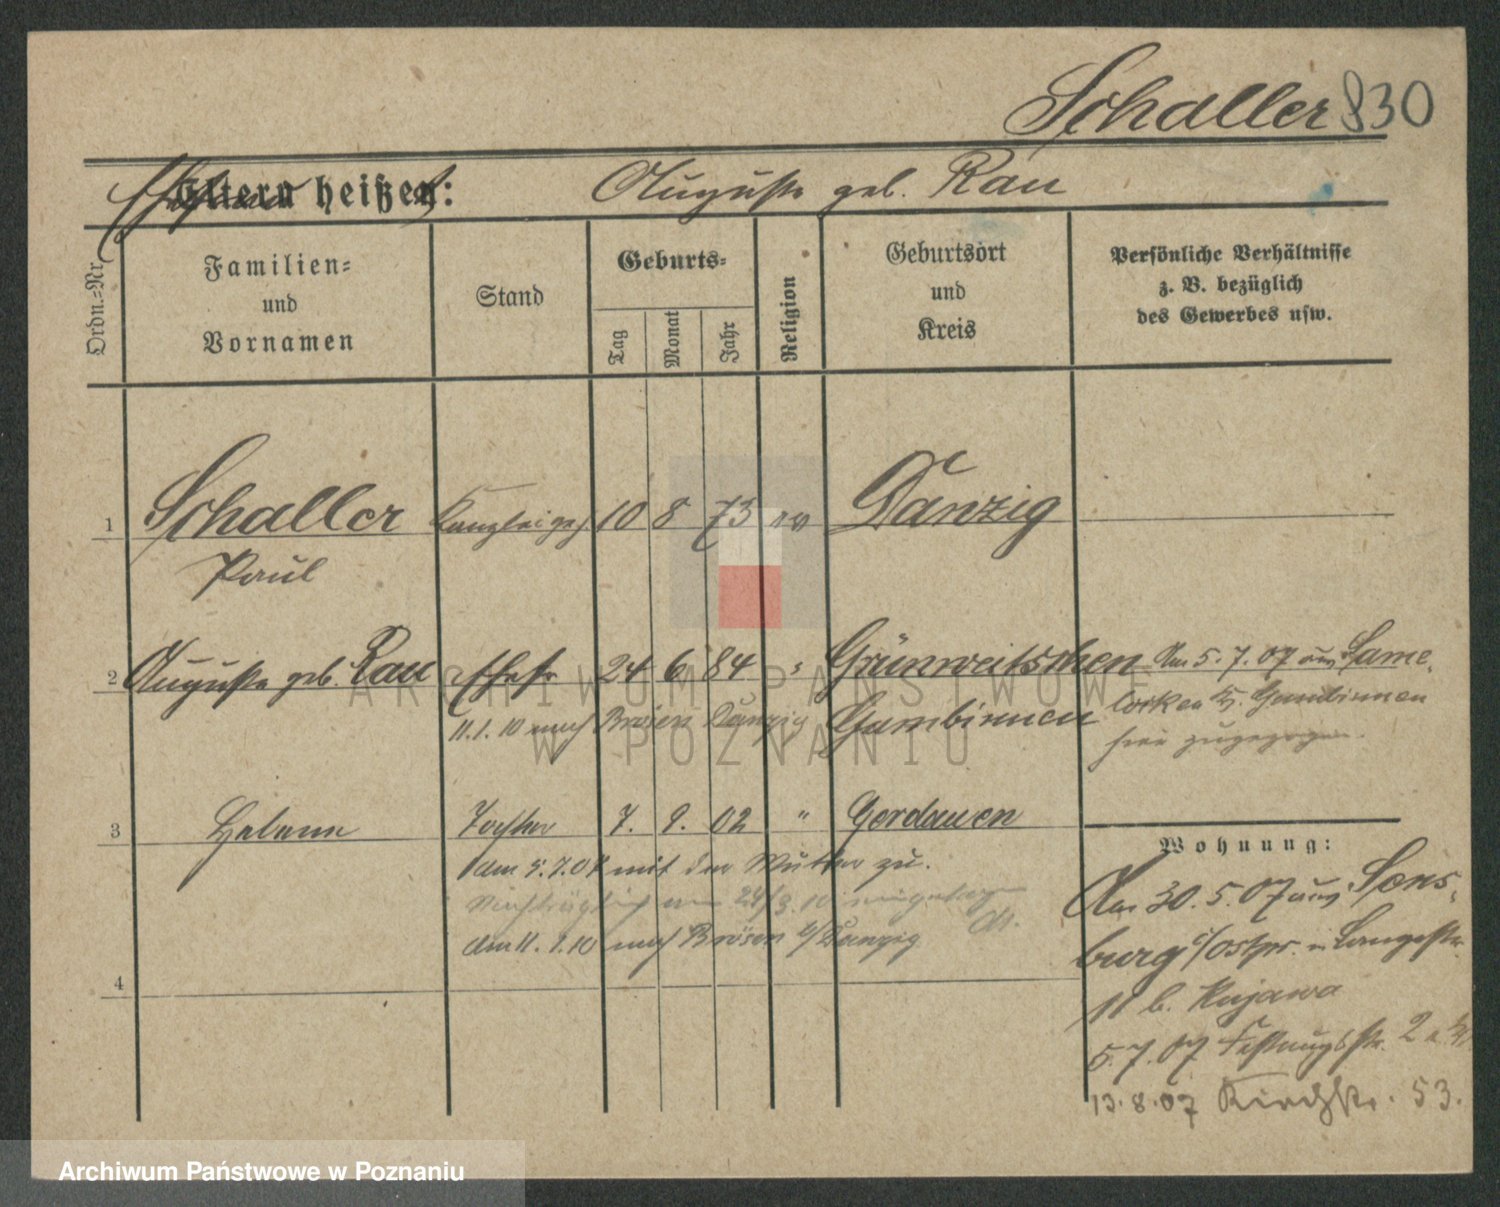 Schaller 830
Eltern heißen: Auguste geb. Rau
Ordn.=Nr.
Familien=
und
Vornamen
Stand
Geburts=
Tag
Monat
Jahr
Religion
Geburtsort
und
Kreis
Persönliche Verhältnisse
z. B. bezüglich
des Gewerbes usw.
1 Schaller Kanzleigeh. 10 8 73 ev Danzig
Paul
2 Auguste geb. Rau Ehefr 24 6 84 " Grünweitschen
11.1.10 nach Brösen Danzig Gumbinnen
Am 5.7.07 aus
Gumbinnen
hier zugezogen.
3 Helene Tochter 7. 9. 02 " Gerdauen
am 5.7.07 mit der Mutter zu.
Nachträglich am
am 11.1.10 nach Brösen b/Danzig
4
Wohnung:
Am 30.5.07 aus Sens-
burg i/Ostpr. n Langestr.
11 b. Kujawa
5.7.07 Festungsstr. 2
13.8.07 Kirchstr. 53.
ARCHIWUM PAŃSTWOWE
W POZNANIU
Archiwum Państwowe w Poznaniu